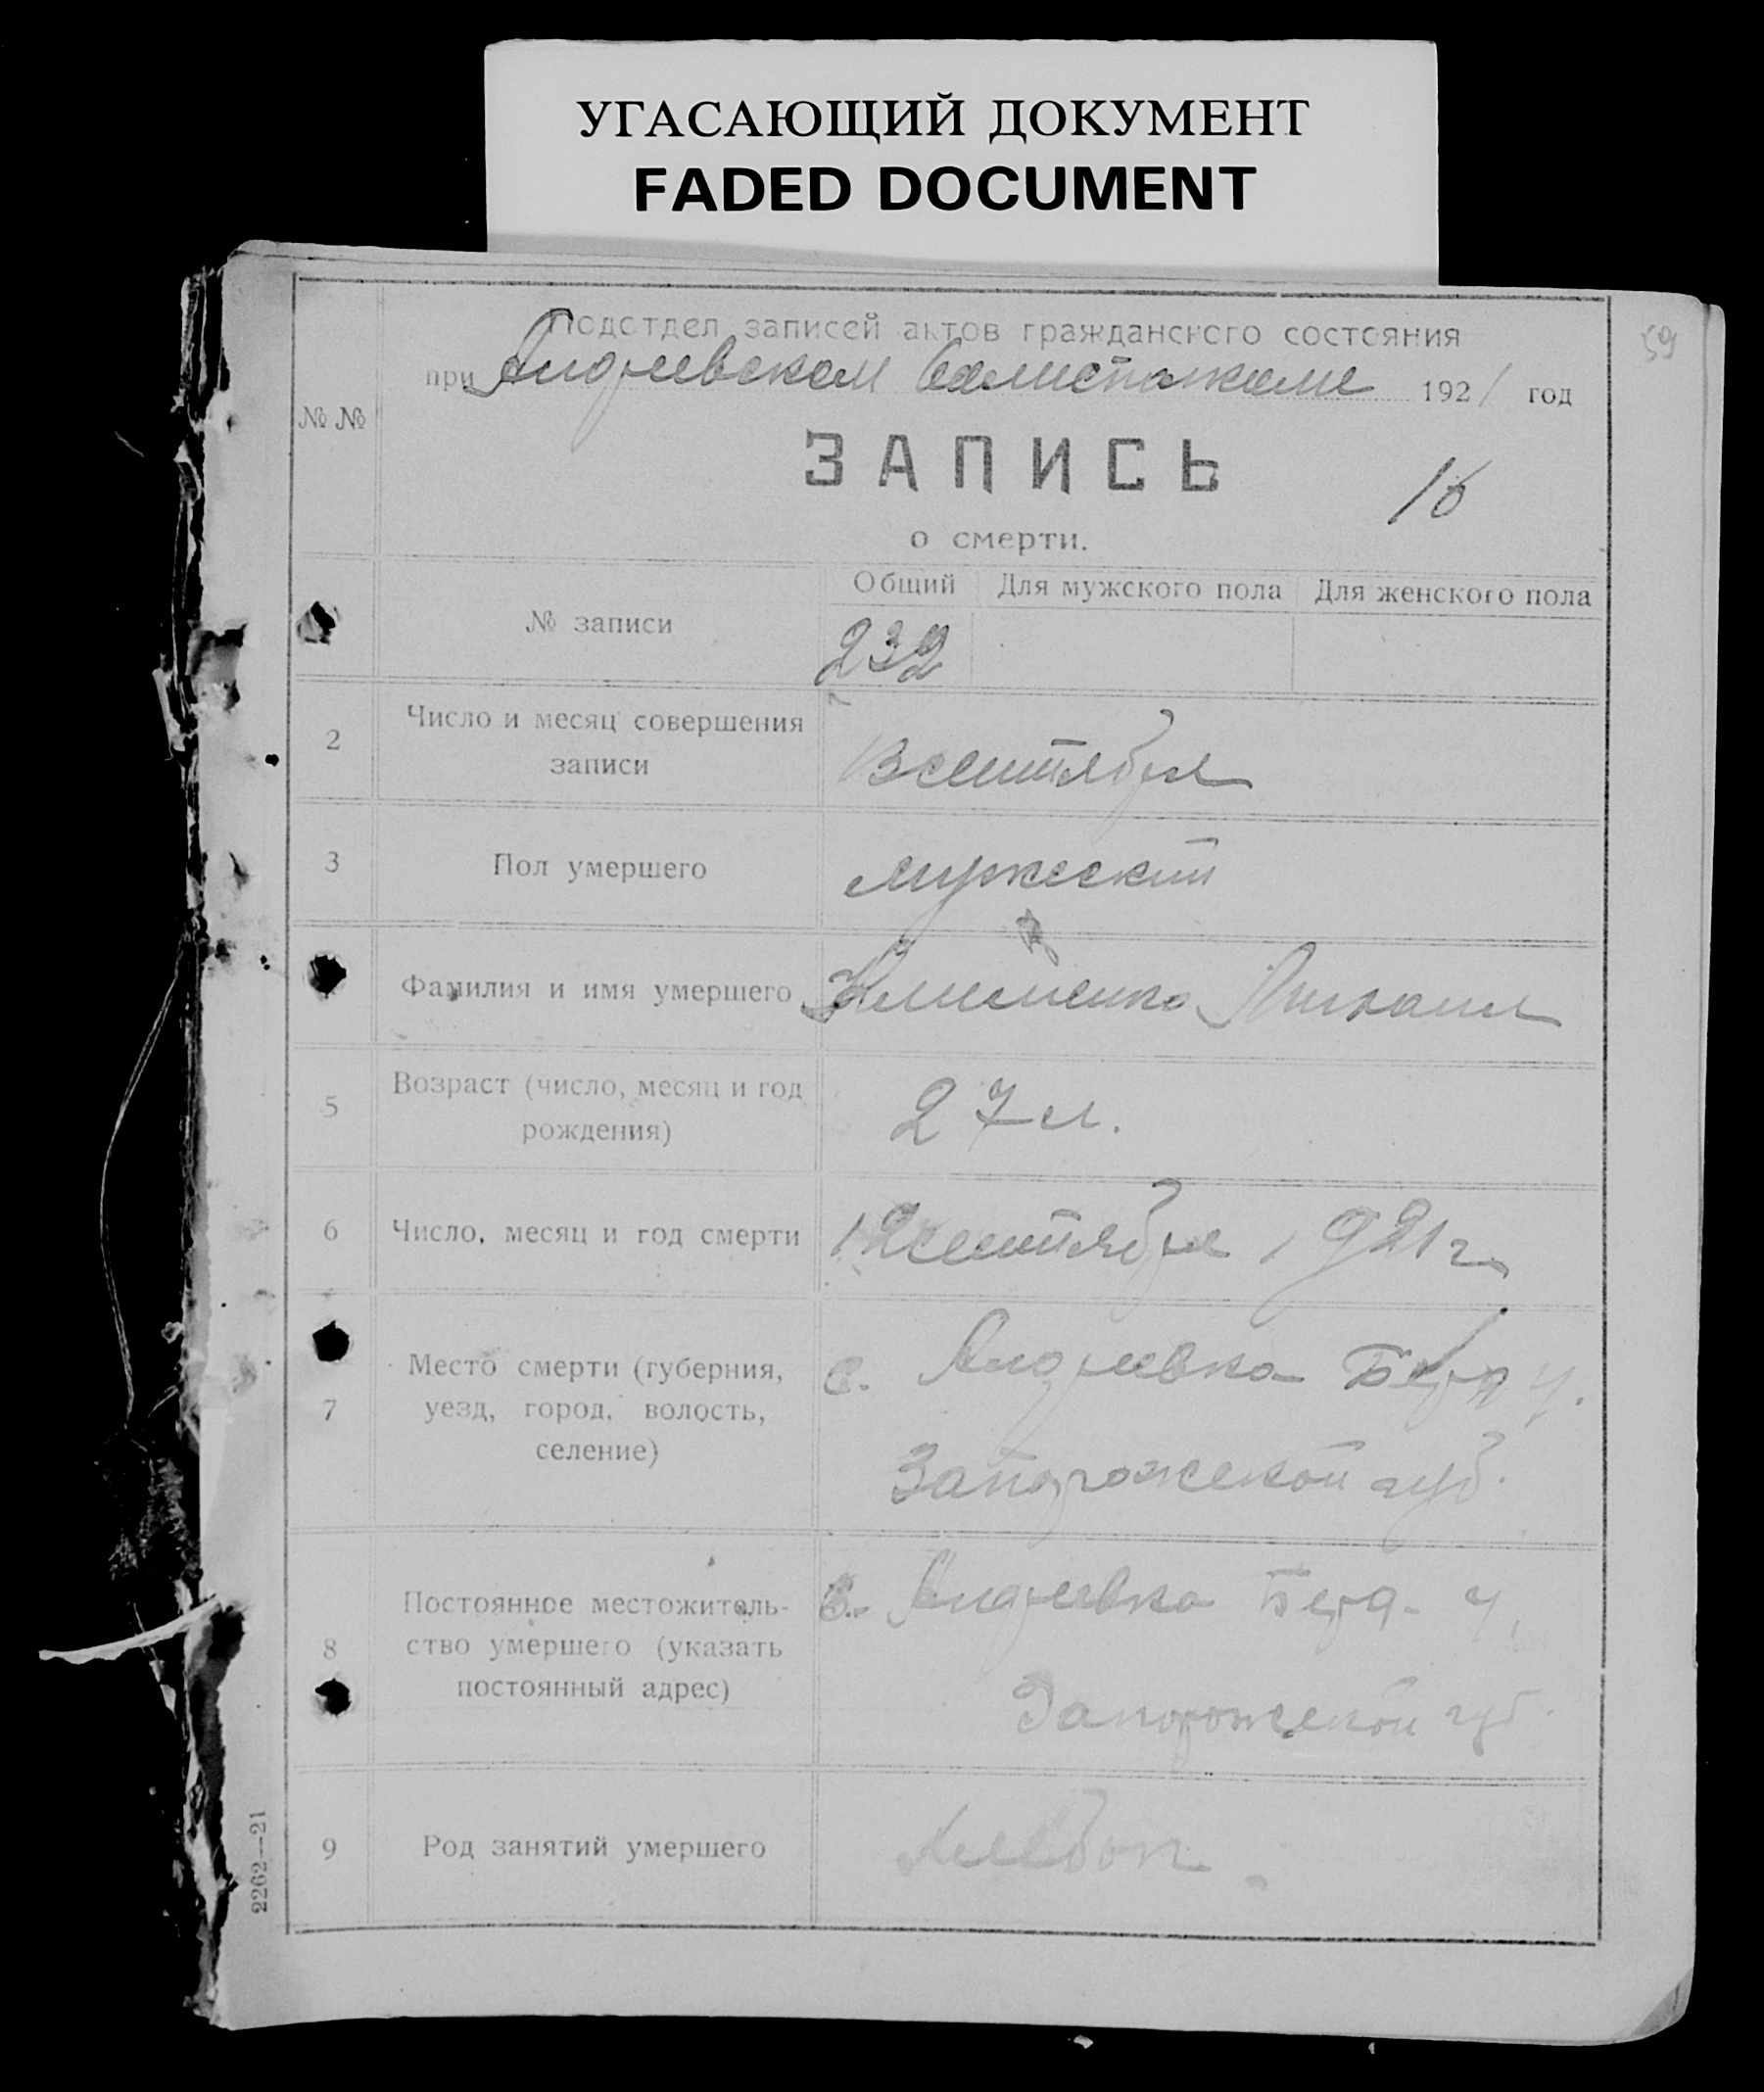 УГАСАЮЩИЙ ДОКУМЕНТ
FADED DOCUMENT
59
Подотдел записей актов гражданского состояния
при Андреевском Волисполкоме 1921 год
№ №
ЗАПИСЬ
16
о смерти.
№ записи
Общий Для мужского пола Для женского пола
232
2 Число и месяц совершения
записи
13 сентября
3 Пол умершего мужеский
Фамилия и имя умершего Клименко Михаил
5 Возраст (число, месяц и год
рождения)
27 л.
6 Число, месяц и год смерти 12 сентября 1921 г.
7 Место смерти (губерния,
уезд, город, волость,
селение)
с. Андреевка Берд у.
Запорожской губ.
8 Постоянное местожитель-
ство умершего (указать
постоянный адрес)
с. Андреевка Берд. у.
Запорожской губ.
9 Род занятий умершего Хлебоп.
2262—21